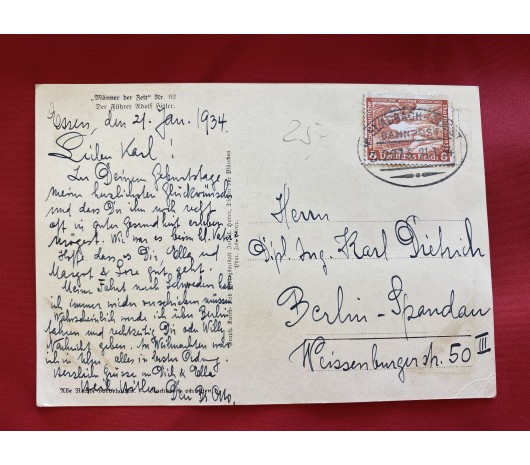 „Männer der Zeit" Nr. 112
Der Führer Adolf Hitler.
Essen, den 21. Jan. 1934.
Lieber Karl!
Zu Deinem Geburtstage
mein herzlichsten Glückwünsche
und dass Du ihn noch recht
oft in guter Gesundheit erleben
mögest. Wie war es beim
Hoffe dass es Dir, Ella und
Margot & Lore gut geht.
Meine Fahrt nach Schweden habe
ich immer wieder verschieben müssen
Wahrscheinlich werde ich über Berlin
fahren und rechtzeitig Dir oder Willy
Nachricht geben. Zu Weihnachten war
ich in alles in bester Ordnung.
Herzliche Grüsse an Dich & Ella
Heil Hitler Dein Otto.
25,-
BAHNPOST
6 Deutsches Reich 6
Herrn
Dipl. Ing. Karl Dietrich
Berlin-Spandau
Weissenburgerstr. 50 III